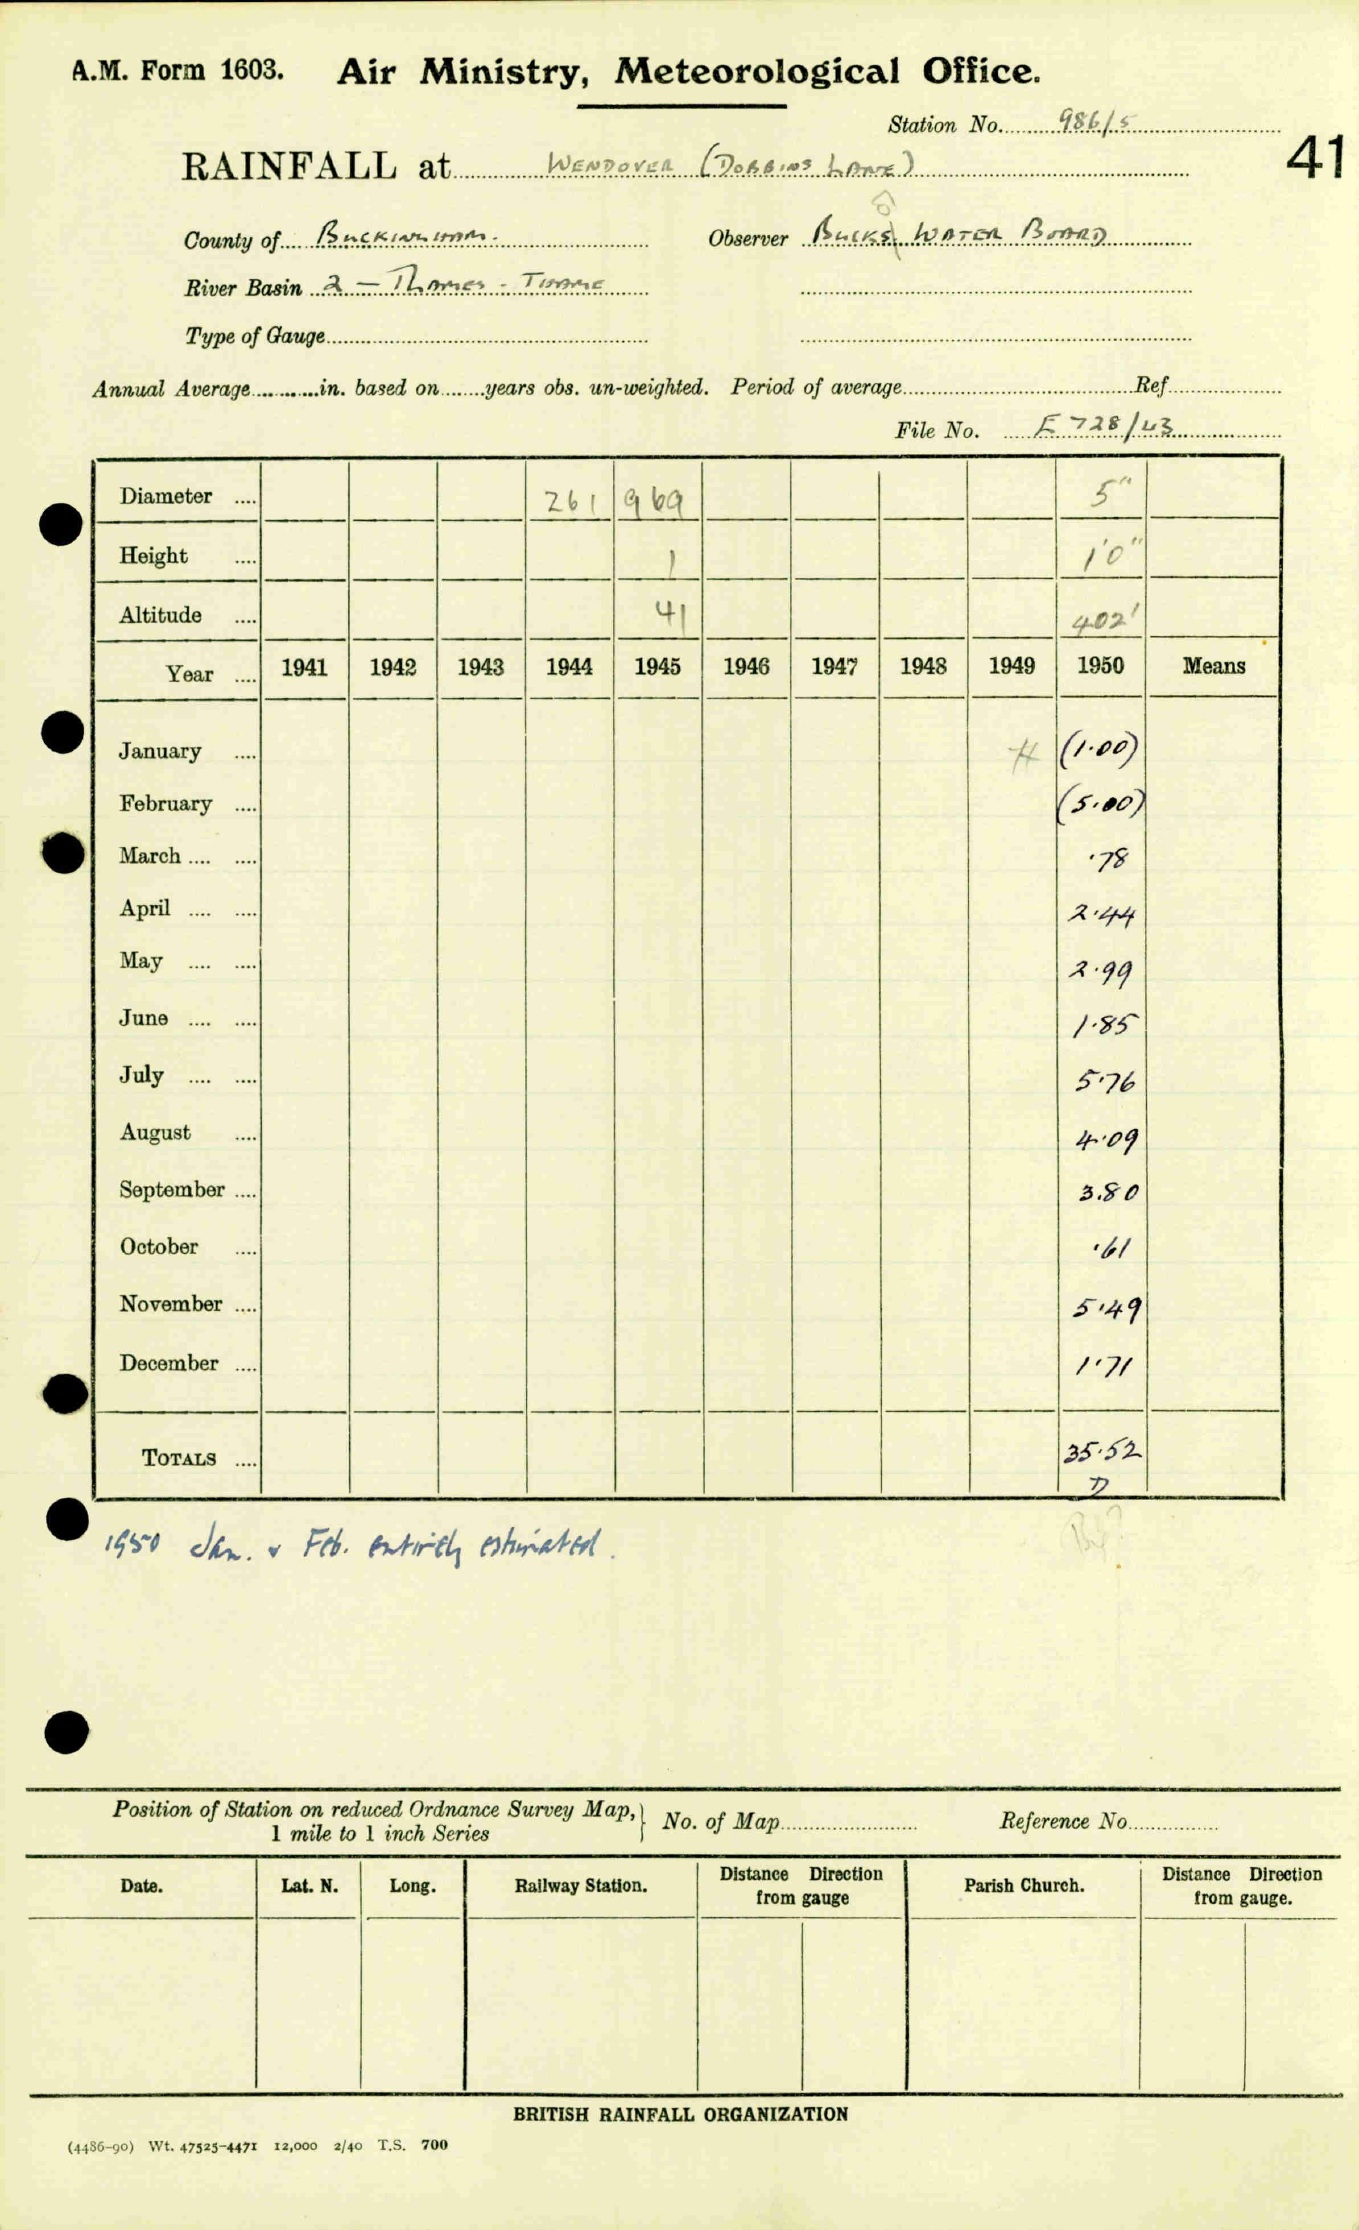 A.M. Form 1603. Air Ministry, Meteorological Office.
Station No. 986/5
41
RAINFALL at WENDOVER (DOBBINS LANE)
County of BUCKINGHAM. Observer BUCKS WATER BOARD
River Basin 2 — THAMES - THAME
Type of Gauge
Annual Average in. based on years obs. un-weighted. Period of average Ref
File No. E 728/43
Diameter 261 969 5"
Height 1 1'0"
Altitude 41 402'
Year 1941 1942 1943 1944 1945 1946 1947 1948 1949 1950 Means
January (1.00)
February (5.00)
March ·78
April 2·44
May 2·99
June 1·85
July 5·76
August 4·09
September 3.80
October ·61
November 5·49
December 1·71
TOTALS 35·52
1950 Jan. & Feb. entirely estimated.
Position of Station on reduced Ordnance Survey Map, 1 mile to 1 inch Series } No. of Map Reference No.
Date. Lat. N. Long. Railway Station. Distance Direction from gauge Parish Church. Distance Direction from gauge.
BRITISH RAINFALL ORGANIZATION
(4486-90) Wt. 47525-4471 12,000 2/40 T.S. 700